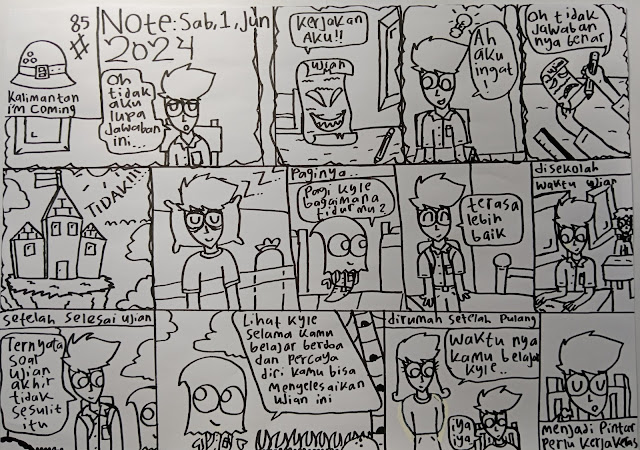 85
#
Note: Sab, 1, Jun
2024
Kalimantan
i'm coming
Oh
tidak
aku
lupa
Jawaban
ini..
Kerjakan
AKU!!
ujian
Ah
aku
ingat
!
Oh tidak
Jawaban
nya benar
TIDAK!!!
zz..
Paginya..
Pagi Kyle
bagaimana
tidurmu?
terasa
lebih
baik
disekolah
waktu ujian
setelah selesai ujian
Ternyata
soal
ujian
akhir
tidak
sesulit
itu
Lihat Kyle
selama kamu
belajar berdoa
dan percaya
diri kamu bisa
Menyelesaikan
Ujian ini
dirumah setelah Pulang
Waktu nya
kamu belajar
Kyle..
iya
iya
menjadi Pintar
Perlu Kerja Keras